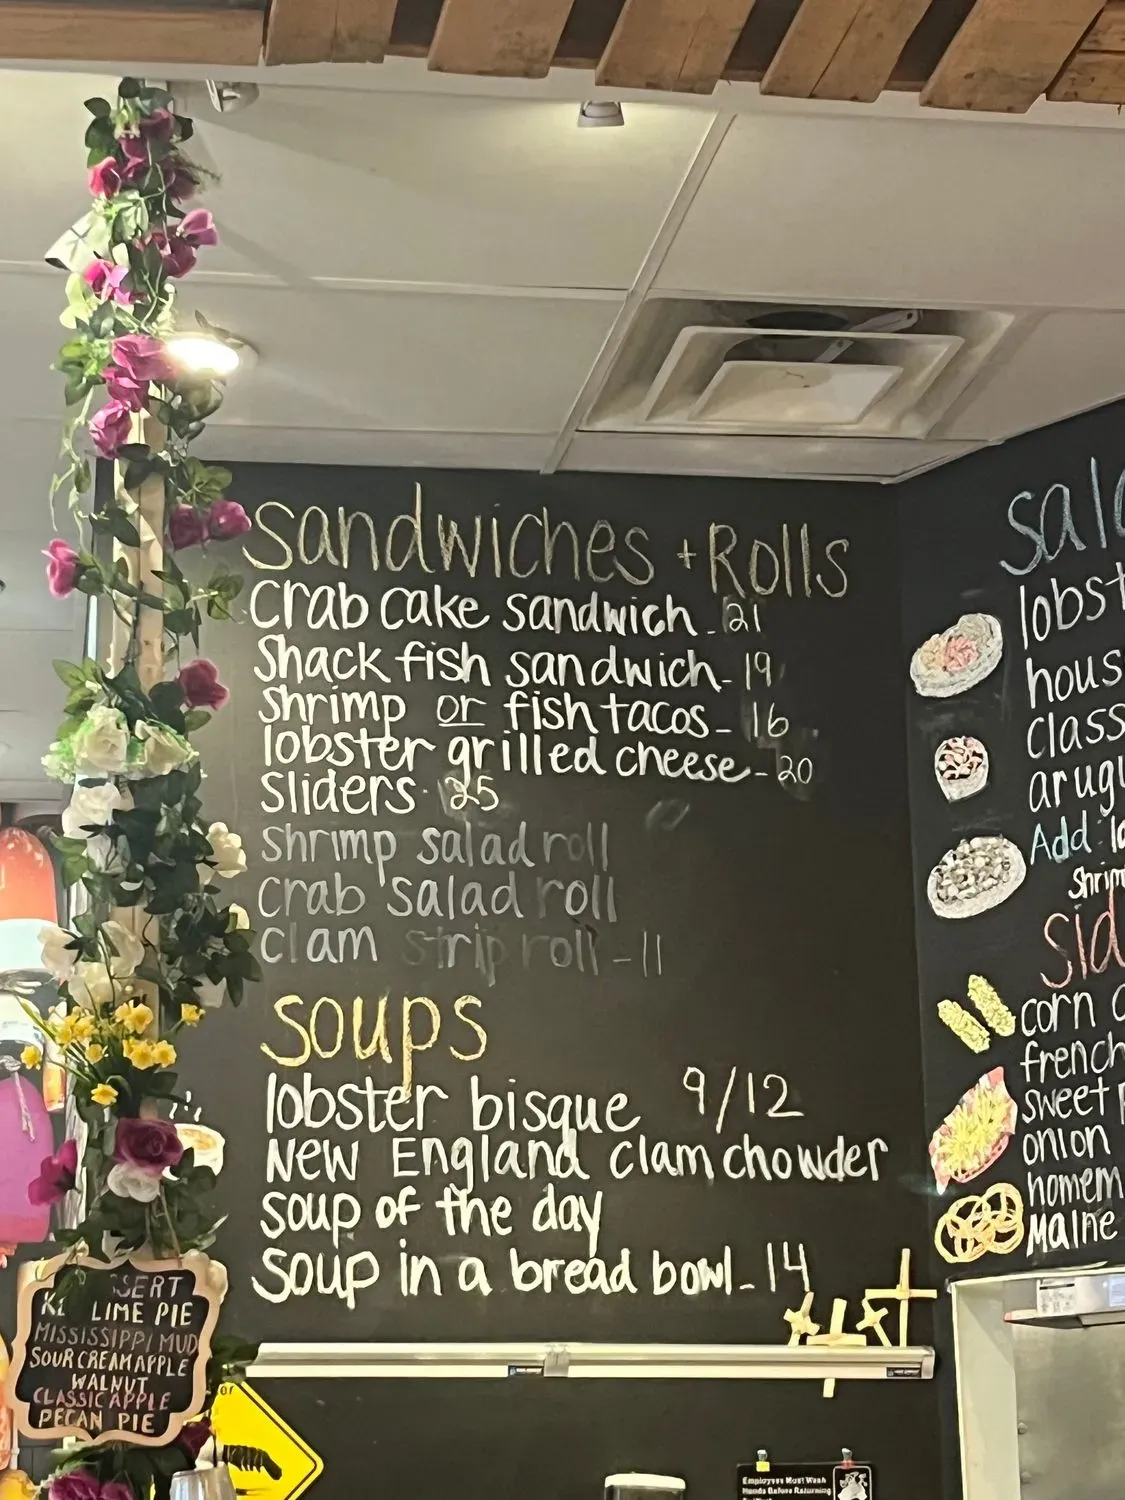 Sandwiches + Rolls
Crab cake sandwich - 21
Shack fish sandwich - 19
shrimp or fish tacos - 16
lobster grilled cheese - 20
Sliders - 25
shrimp salad roll
Crab salad roll
clam strip roll - 11
Soups
lobster bisque 9/12
New England clam chowder
soup of the day
Soup in a bread bowl - 14
lobst
hous
class
arugu
Add
Shrim
Sid
corn
french
sweet
onion
homem
Maine
LIME PIE
MISSISSIPPI MUD
SOUR CREAM APPLE
WALNUT
CLASSIC APPLE
PECAN PIE
Employees Must Wash
Hands Before Returning